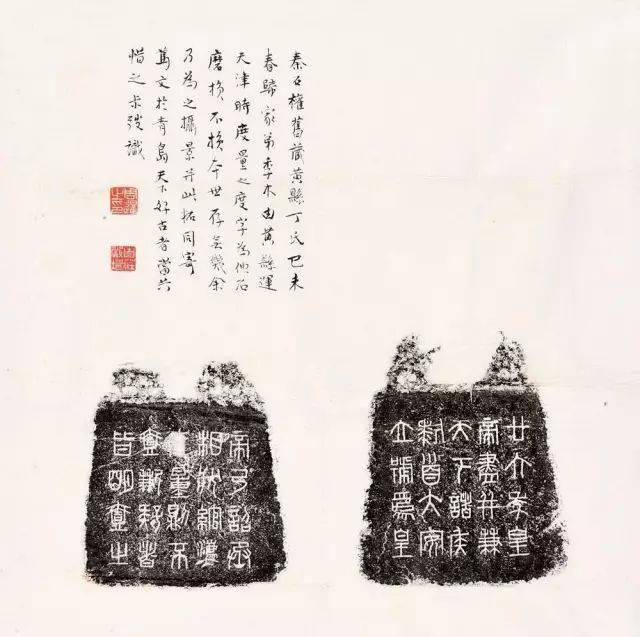 秦石權舊藏黃縣丁氏己未
春歸家弟季木由黃縣運
天津時度量之度字為他石
磨損不損世存無幾余
乃為之攝景并此拓同寄
篤文於青島天下好古者當共
惜之尗弢識
廿六年皇
帝盡并兼
天下諸侯
黔首大安
立號爲皇
帝乃詔丞
相狀綰灋
量則不
壹歉疑者
皆明壹之